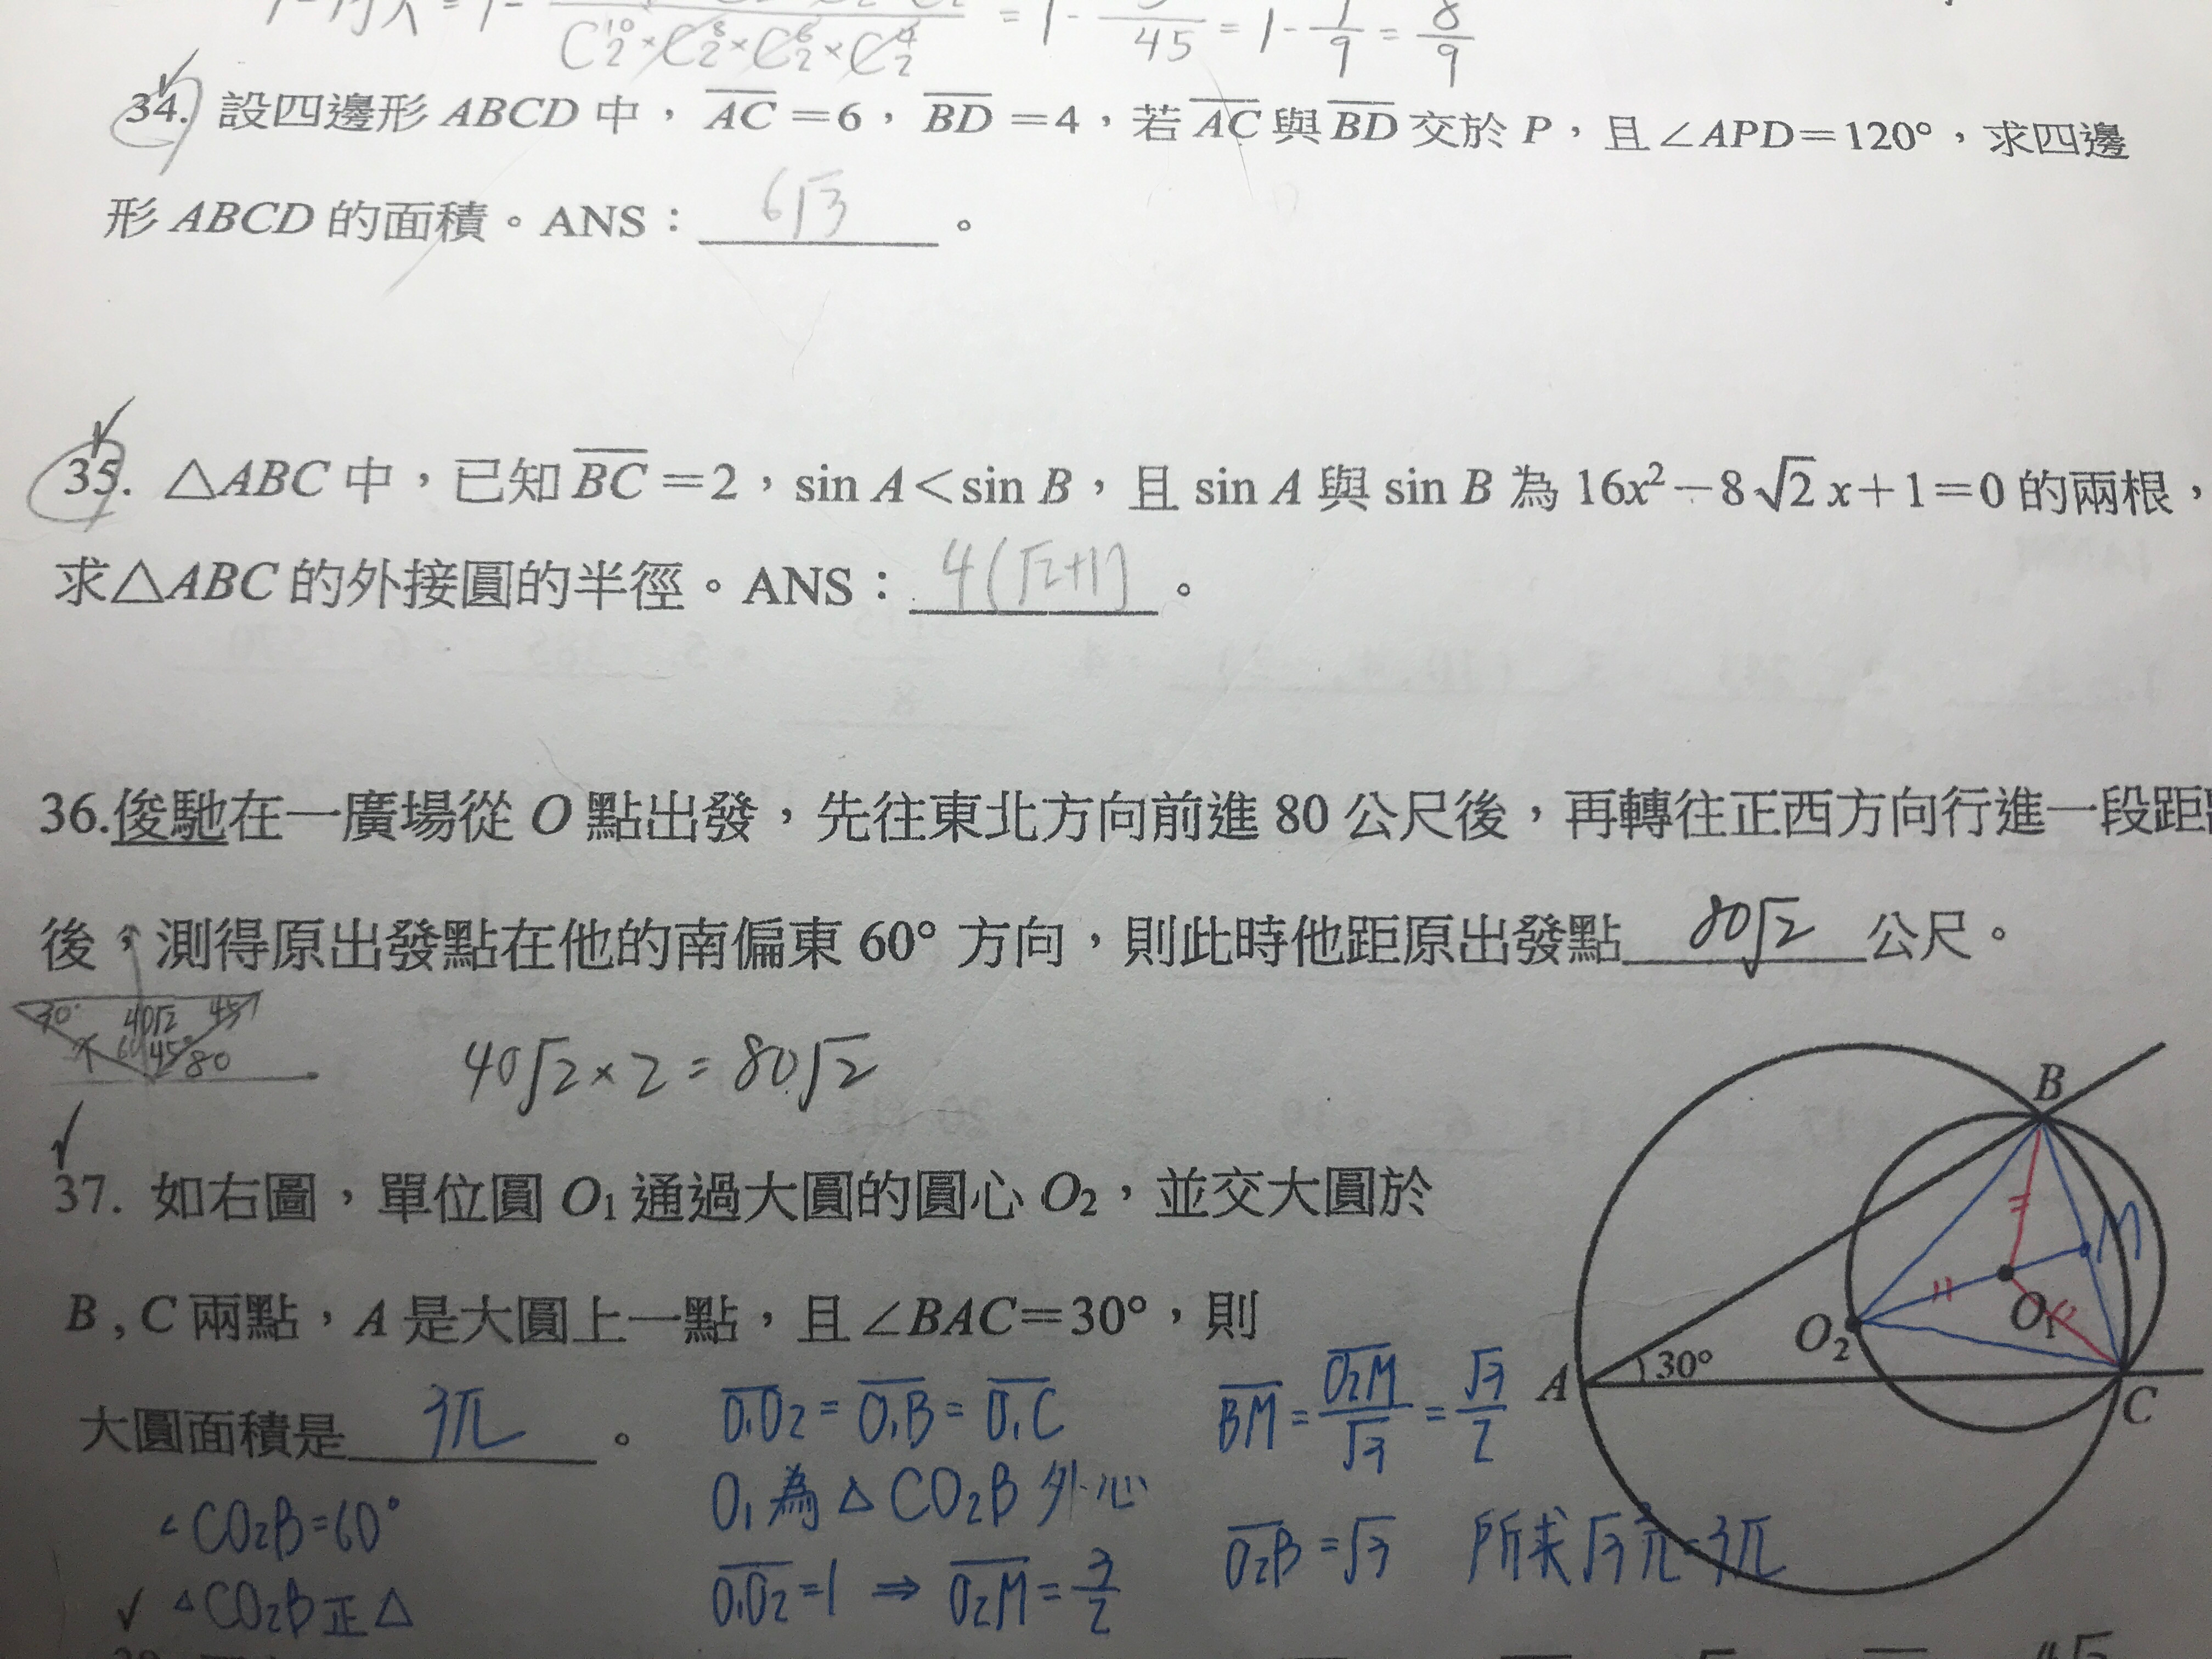 C₂¹⁰×C₂⁸×C₂⁶×C₂⁴ = 1 - /45 = 1 - 1/9 = 8/9
34. 設四邊形 ABCD 中，AC＝6，BD＝4，若 AC 與 BD 交於 P，且∠APD＝120°，求四邊
形 ABCD 的面積。ANS：6√3。
35. △ABC 中，已知 BC＝2，sin A＜sin B，且 sin A 與 sin B 為 16x²－8√2 x＋1＝0 的兩根，
求△ABC 的外接圓的半徑。ANS：4(√2+1)。
36.俊馳在一廣場從 O 點出發，先往東北方向前進 80 公尺後，再轉往正西方向行進一段距
後，測得原出發點在他的南偏東 60° 方向，則此時他距原出發點 80√2 公尺。
30° 40√2 45°
x 60 45° 80
40√2×2=80√2
37. 如右圖，單位圓 O₁ 通過大圓的圓心 O₂，並交大圓於
B , C 兩點，A 是大圓上一點，且∠BAC＝30°，則
大圓面積是 3π。
∠CO₂B=60°
△CO₂B正△
O₁O₂=O₁B=O₁C
O₁為△CO₂B外心
O₁O₂=1 ⇒ O₂M=3/2
BM=O₂M/√3=√3/2
O₂B=√3 所求√3²π=3π
B
M
O₁
O₂
A
30°
C